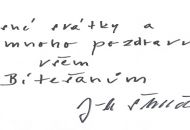 ené svátky a
mnoho pozdravů
všem
Bítešáním